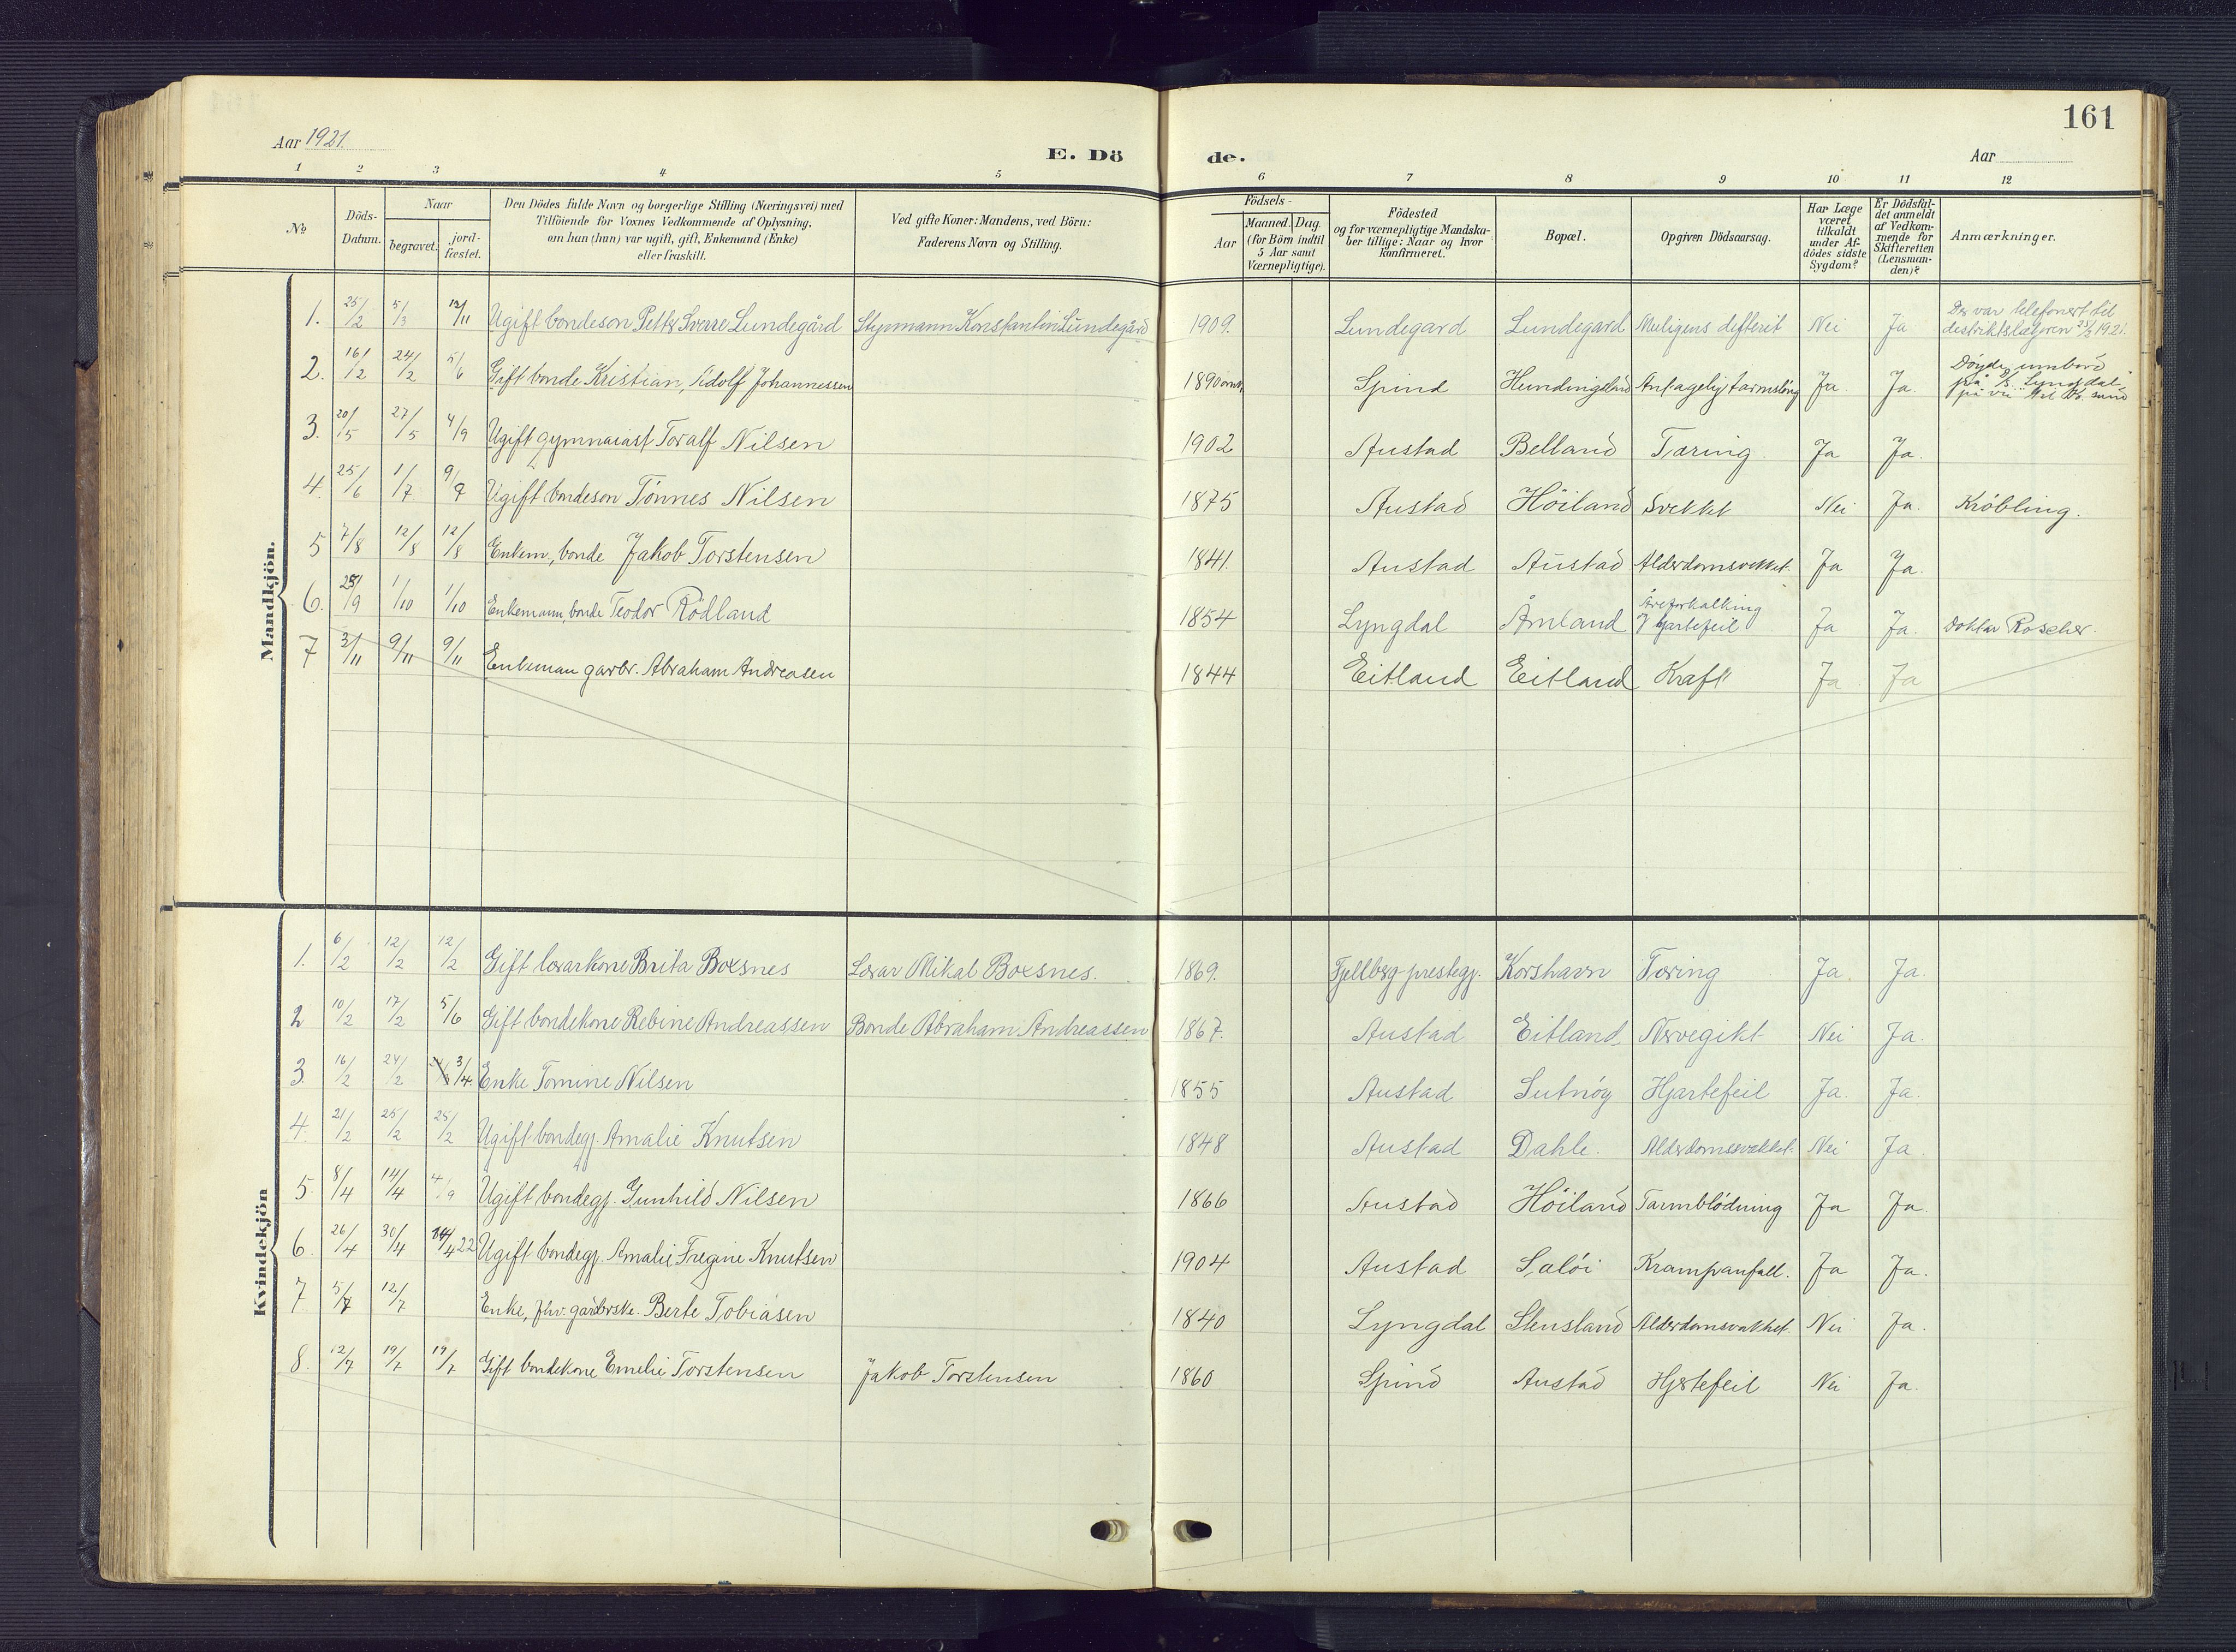 161
Aar 1921.
E. Dö de.
Aar
1 2 3 4 5 6 7 8 9 10 11 12
No
Döds-Datum.
Naar
begravet.
jord-fæstet.
Den Dödes fulde Navn og borgerlige Stilling (Næringsvei) med
Tilföiende for Voxnes Vedkommende af Oplysning,
om han (hun) var ugift, gift, Enkemand (Enke)
eller fraskilt.
Ved gifte Koner: Mandens, ved Börn:
Faderens Navn og Stilling.
Födsels-
Aar
Maaned. Dag.
(for Börn indtil
5 Aar samt
Værnepligtige).
Födested
og for værnepligtige Mandska-
ber tillige: Naar og hvor
konfirmeret.
Bopæl.
Opgiven Dödsaarsag.
Har Læge
været
tilkaldt
under Af-
dödes sidste
Sygdom?
Er Dödsfal-
det anmeldt
af Vedkom-
mende for
Skifteretten
(Lensman-
den)?
Anmærkninger.
Mandkjön.
1. 25/2 5/3 12/11 Ugift bondeson Petter Sverre Lundegård Styrmann Konstantin Lundegård 1909. Lundegard Lundegard Muligens difterit Nei Ja Der var telefonert til
distriktslægen 25/2 1921.
2. 16/2 24/2 5/6 Gift bonde Kristian, Adolf Johannessen 1890 Spind Antageligt Ja Ja Döyde umbord
på S/S "Lyngdal"
på
3. 20/5 27/5 4/9 Ugift gymnasiast Toralf Nilsen 1902 Austad Belland Tæring Ja Ja.
4. 25/6 1/7 9/9 Ugift bondeson Tönnes Nilsen 1875 Austad Höiland Svekket Nei Ja. Kröbling.
5 7/8 12/8 12/8 Enkem., bonde Jakob Torstensen 1841. Austad Austad Alderdomsvekket. Ja Ja.
6. 25/9 1/10 1/10 Enkemann, bonde Teodor Rödland 1854 Lyngdal Åmland Åreforkalking
Hjartefeil Ja Ja. Doktar Roscher.
7 3/11 9/11 9/11 Enkeman garbr. Abraham Andreasen 1844 Eitland Eitland Kræft Ja Ja
Kvindekjön
1. 6/2 12/2 12/2 Gift lærarkone Brita Boxsnes Lærar Mikal Boxsnes. 1869. Fjellberg prestegj. Korshavn Tæring Ja. Ja.
2 10/2 17/2 5/6 Gift bondekone Rebine Andreassen Bonde Abraham Andreassen 1867. Austad Eitland, Nervegikt Nei Ja.
3. 16/2 24/2 3/4 Enke Tomine Nilsen 1855 Austad Sutnöy Hjartefeil Ja. Ja.
4. 21/2 25/2 25/2 Ugift bondegj. Amalie Knutsen 1848 Austad Dahle. Alderdomssvekket. Nei Ja
5. 8/4 14/4 4/9 Ugift bondegj. Gunhild Nilsen 1866 Austad Höiland Tarmblödning Ja Ja.
6. 26/4 30/4 /4 22 Ugift bondegj. Amalie Fregine Knutsen 1904 Austad Saløi Krampanfall. Ja Ja.
7 5/7 12/7 Enke, fhv. gårdbrske. Berte Tobiasen 1840 Lyngdal Stensland Alderdomsvakhet. Nei Ja.
8. 12/7 19/7 19/7 Gift bondekone Emelie Torstensen Jakob Torstensen 1860 Spind Austad Hjertefeil Nei Ja.